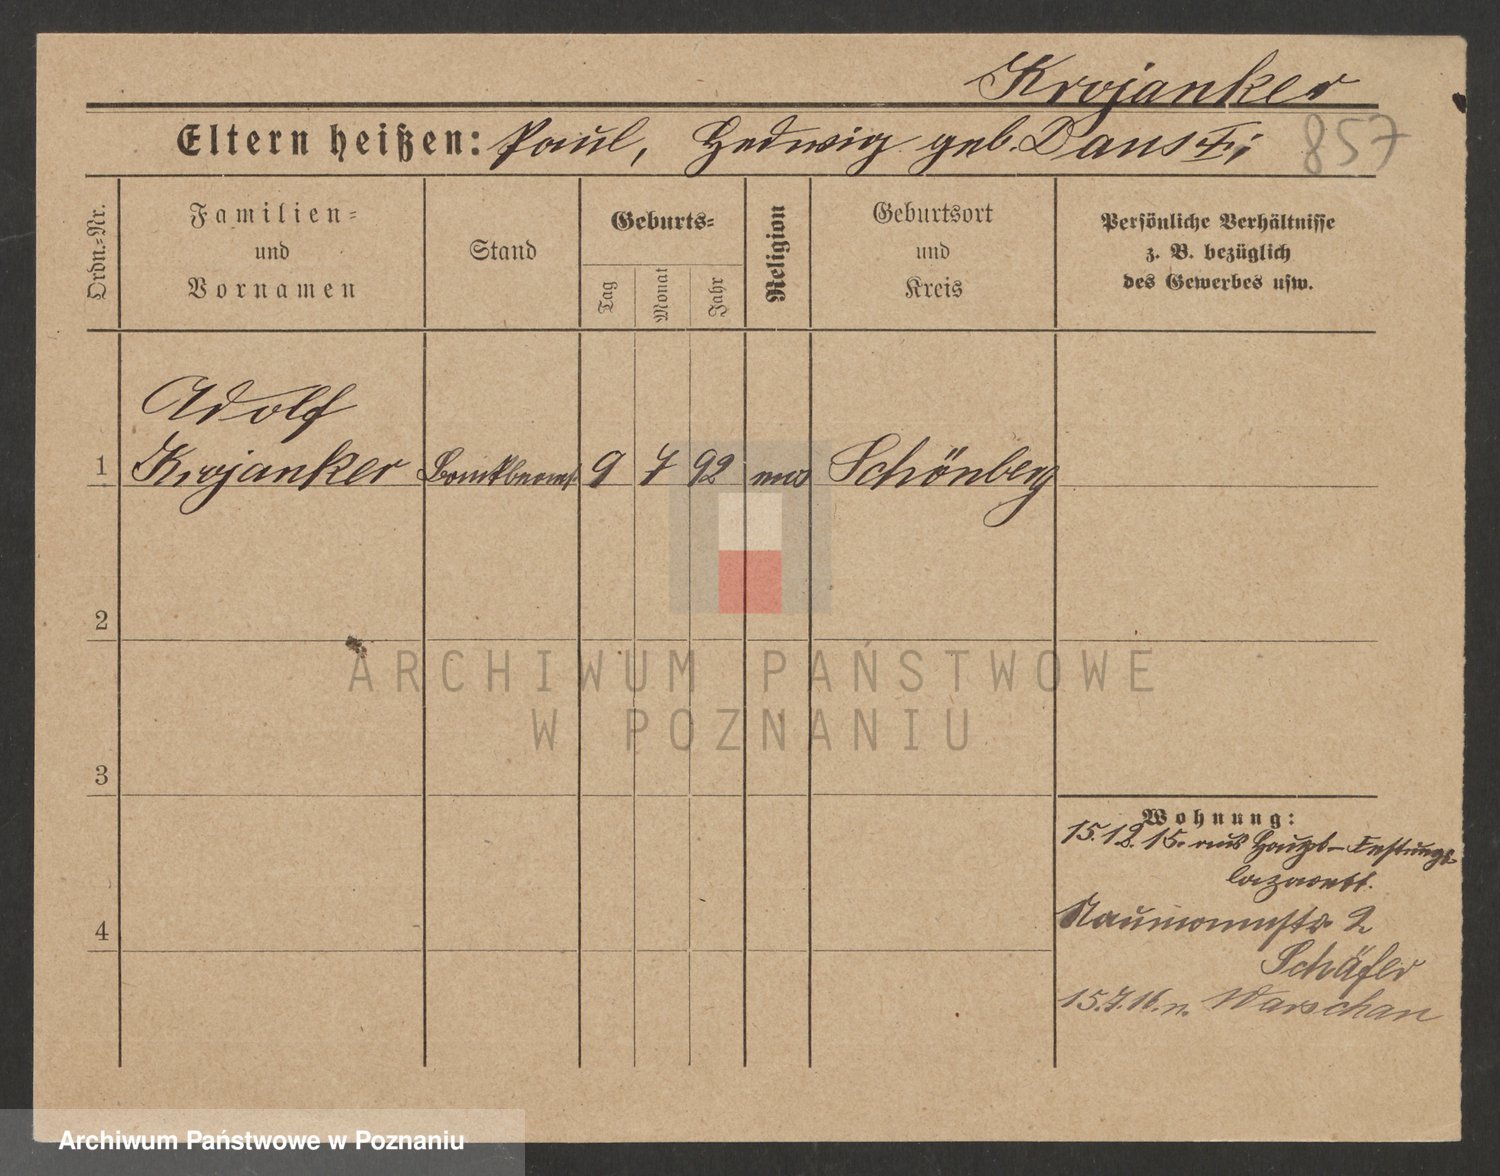 Krojanker
Eltern heißen: Paul, Hedwig geb.
857
Ordn.-Nr.
Familien-
und
Vornamen
Stand
Geburts-
Tag
Monat
Jahr
Religion
Geburtsort
und
Kreis
Persönliche Verhältnisse
z. B. bezüglich
des Gewerbes usw.
Adolf
1 Krojanker Bankbeamt. 9 7 92 Schönberg
2
ARCHIWUM PAŃSTWOWE
W POZNANIU
3
Wohnung:
15.12.15. aus Haupt-Festungs-
lazarett.
Naumannstr 2
Schäfer
15.7.16. n. Warschau
4
Archiwum Państwowe w Poznaniu